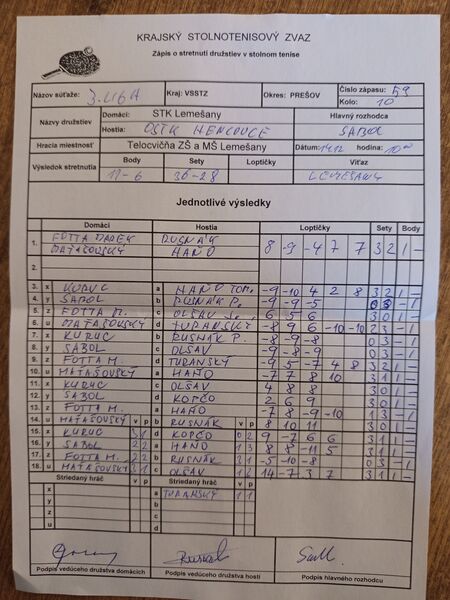 KRAJSKÝ STOLNOTENISOVÝ ZVAZ
Zápis o stretnutí družstiev v stolnom tenise
Názov súťaže: 3. LIGA Kraj: VSSTZ Okres: PREŠOV Číslo zápasu: 59
Kolo: 10
Názvy družstiev Domáci: STK Lemešany Hlavný rozhodca
Hostia: OSTK HENCOVCE SABOL
Hracia miestnosť Telocvičňa ZŠ a MŠ Lemešany Dátum: hodina: 10
Výsledok stretnutia Body Sety Loptičky Víťaz
11-6 36-28 LEMEŠANY
Jednotlivé výsledky
Domáci Hostia Loptičky Sety Body
1. FOTTA MAREK RUSNÁK
MATAŠOVSKÝ HAŇO 8 -9 -4 7 7 3 2 1 -
2.
3. x KURUC a HAŇO TOM. -9 -10 4 2 8 3 2 1 -
4. y SABOL b RUSNÁK P. -9 -9 -5 0 3 - 1
5. z FOTTA M. c OLŠAV 6 5 6 3 0 1 -
6. u MATAŠOVSKÝ d TURANSKÝ -8 9 6 -10 -10 2 3 - 1
7. x KURUC b RUSNÁK P. -8 -9 -8 0 3 - 1
8. y SABOL c OLŠAV -9 -8 -9 0 3 - 1
9. z FOTTA M. d TURANSKÝ -9 5 -7 4 8 3 2 1 -
10. u MATAŠOVSKÝ a HAŇO -7 7 8 10 3 1 1 -
11. x KURUC c OLŠAV 4 8 8 3 0 1 -
12. y SABOL d KOPČO 2 6 9 3 0 1 -
13. z FOTTA M. a HAŇO -7 8 -9 -10 1 3 - 1
14. u MATAŠOVSKÝ v p b RUSNÁK v p 8 10 11 3 0 1 -
15. x KURUC 3 1 d KOPČO 0 2 9 -7 6 6 3 1 1 -
16. y SABOL 2 2 a HAŇO 1 3 8 8 -11 5 3 1 1 -
17. z FOTTA M. 2 2 b RUSNÁK 3 1 -5 -10 -8 0 3 - 1
18. u MATAŠOVSKÝ 3 1 c OLŠAV 1 2 14 -7 3 7 3 1 1 -
Striedaný hráč v p Striedaný hráč v p
x a TURANSKÝ 1 1
y b
z c
u d
Podpis vedúceho družstva domácich Podpis vedúceho družstva hostí Podpis hlavného rozhodcu